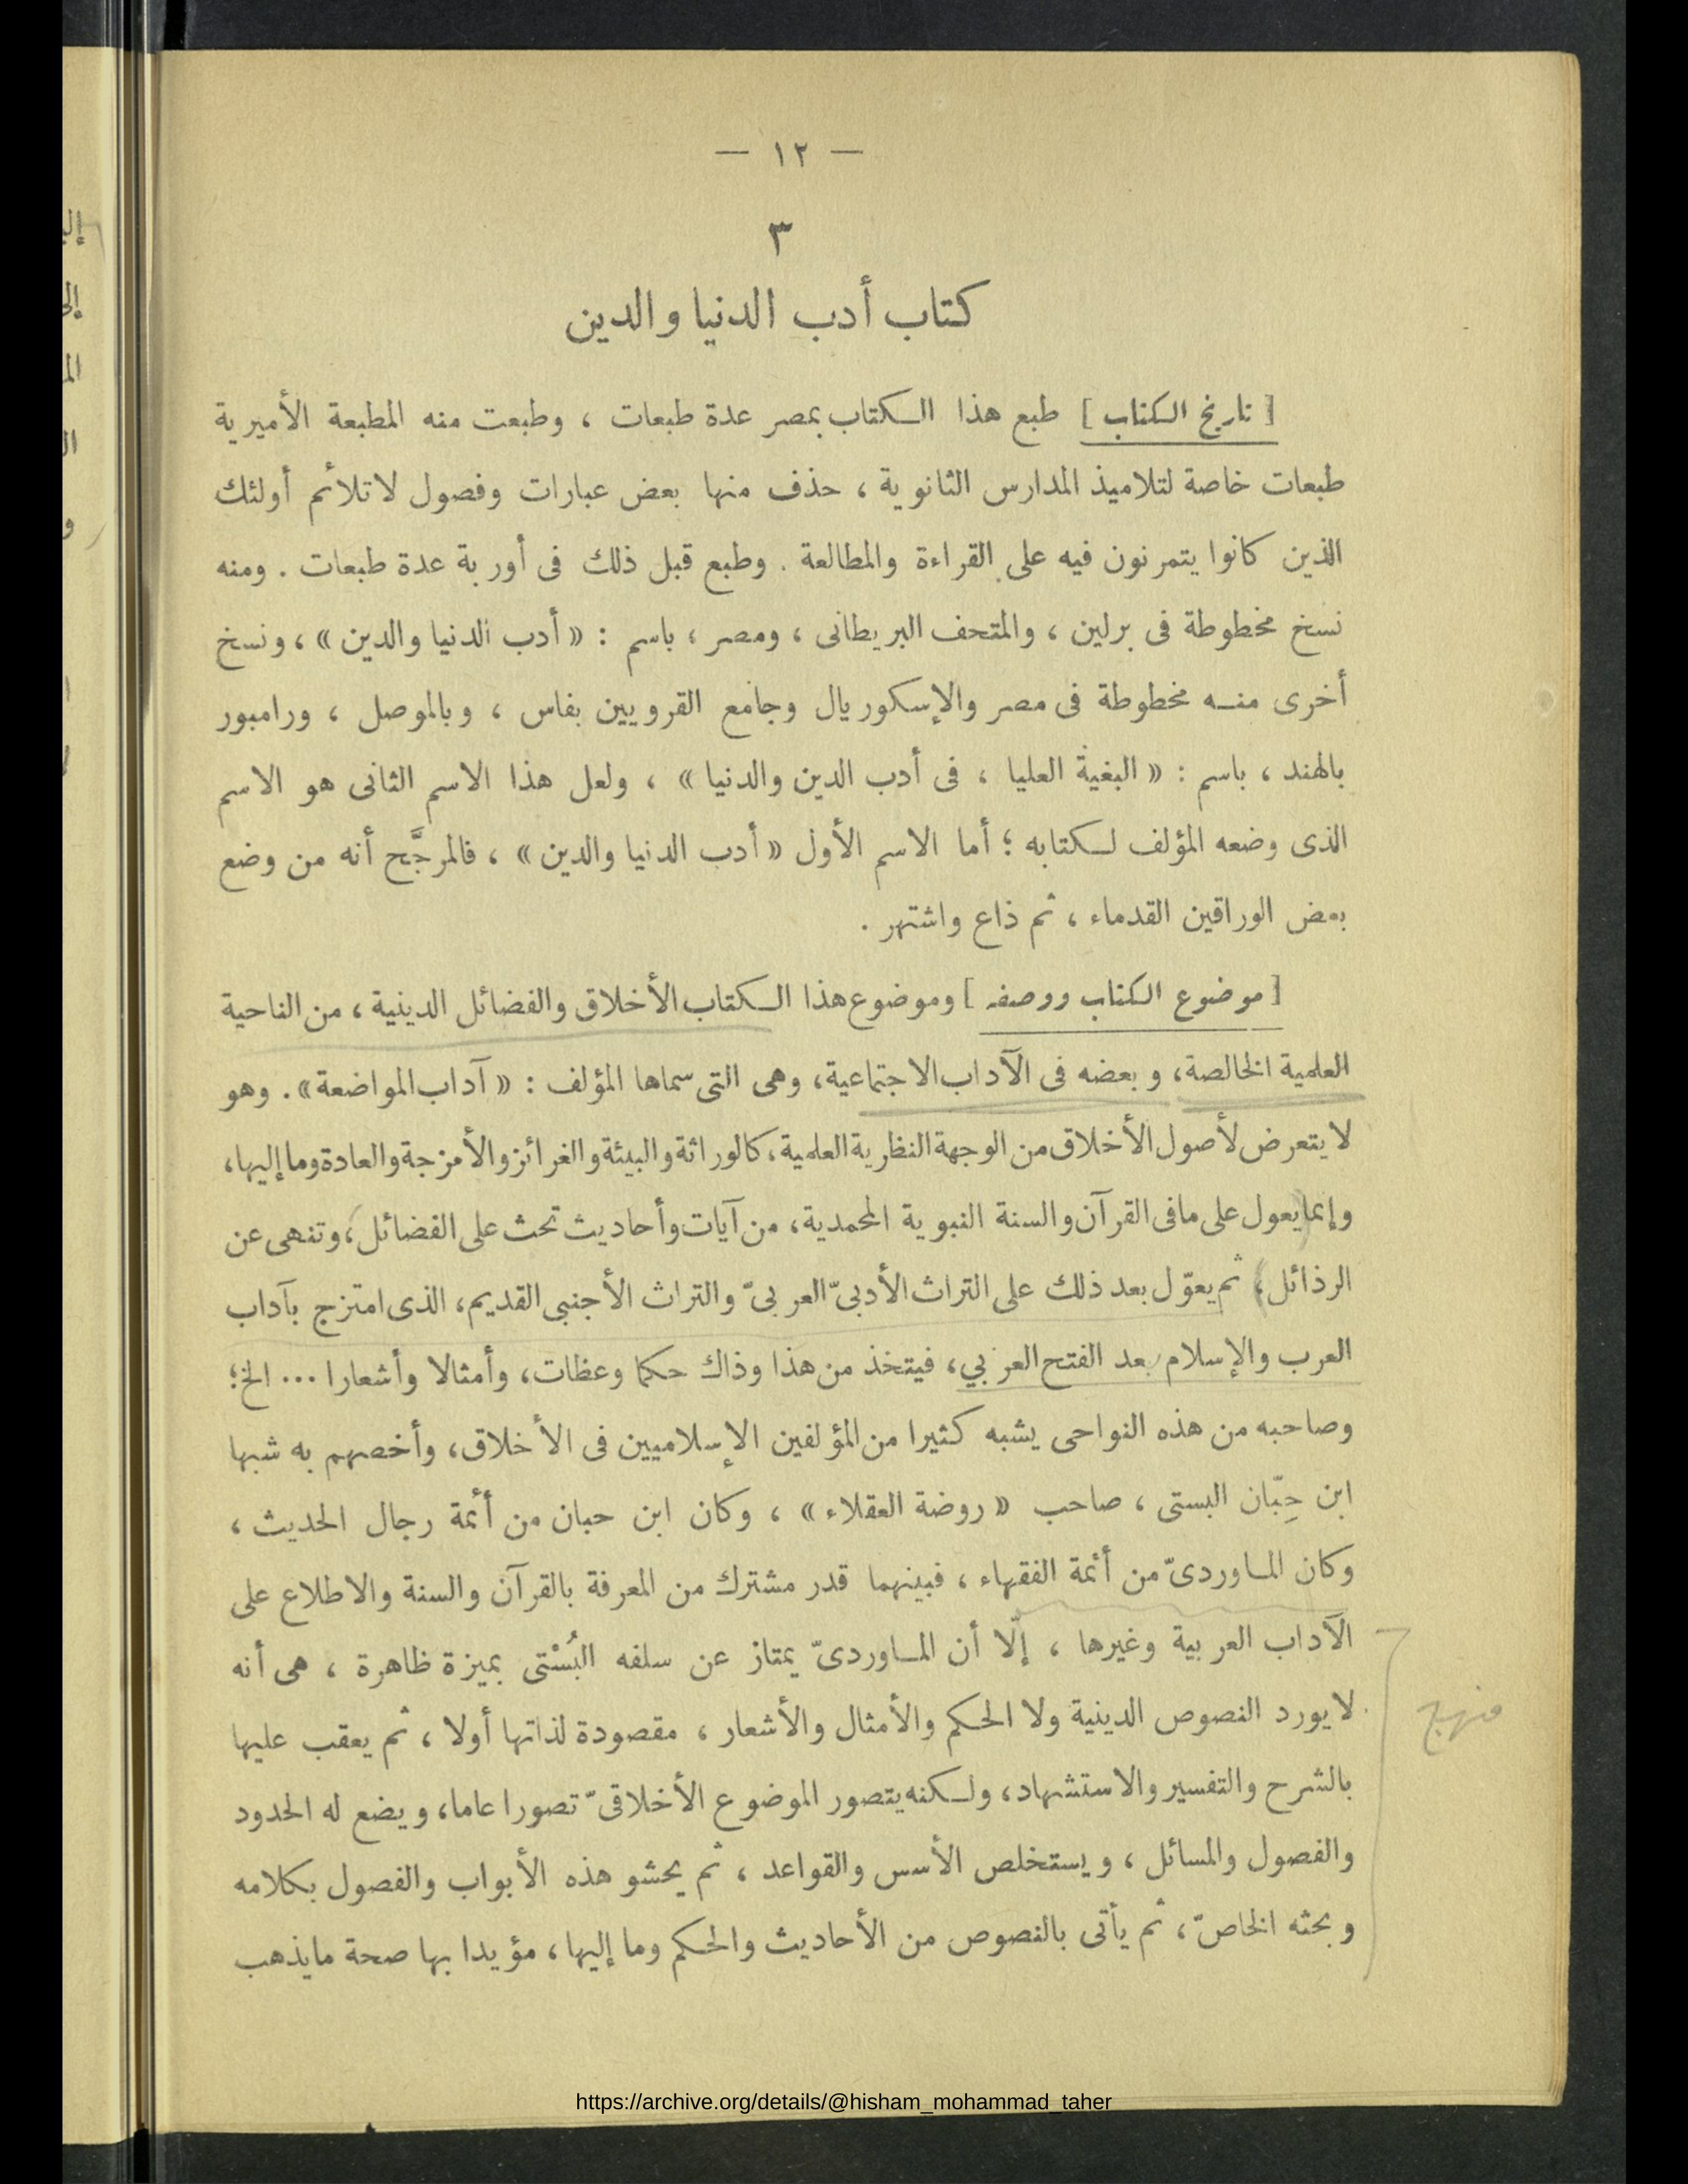 — ١٢ —
٣
كتاب أدب الدنيا والدين
[ تاريخ الكتاب ] طبع هذا الكتاب بمصر عدة طبعات ، وطبعت منه المطبعة الأميرية
طبعات خاصة لتلاميذ المدارس الثانوية ، حذف منها بعض عبارات وفصول لا تلائم أولئك
الذين كانوا يتمرنون فيه على القراءة والمطالعة . وطبع قبل ذلك فى أوربة عدة طبعات . ومنه
نسخ مخطوطة فى برلين ، والمتحف البريطانى ، ومصر ، باسم : « أدب الدنيا والدين » ، ونسخ
أخرى منه مخطوطة فى مصر والإسكوريال وجامع القرويين بفاس ، وبالموصل ، ورامبور
بالهند ، باسم : « البغية العليا ، فى أدب الدين والدنيا » ، ولعل هذا الاسم الثانى هو الاسم
الذى وضعه المؤلف لكتابه ؛ أما الاسم الأول « أدب الدنيا والدين » ، فالمرجَّح أنه من وضع
بعض الوراقين القدماء ، ثم ذاع واشتهر .
[ موضوع الكتاب ووصفه ] وموضوع هذا الكتاب الأخلاق والفضائل الدينية ، من الناحية
العلمية الخالصة ، وبعضه فى الآداب الاجتماعية ، وهى التى سماها المؤلف : « آداب المواضعة » . وهو
لا يتعرض لأصول الأخلاق من الوجهة النظرية العلمية ، كالوراثة والبيئة والغرائز والأمزجة والعادة وما إليها ،
وإنما يعول على ما فى القرآن والسنة النبوية المحمدية ، من آيات وأحاديث تحث على الفضائل ، وتنهى عن
الرذائل ، ثم يعوّل بعد ذلك على التراث الأدبىّ العربىّ والتراث الأجنبى القديم ، الذى امتزج بآداب
العرب والإسلام بعد الفتح العربي ، فيتخذ من هذا وذاك حكما وعظات ، وأمثالا وأشعارا ... الخ ؛
وصاحبه من هذه النواحى يشبه كثيرا من المؤلفين الإسلاميين فى الأخلاق ، وأخصهم به شبها
ابن حِبّان البستى ، صاحب « روضة العقلاء » ، وكان ابن حبان من أئمة رجال الحديث ،
وكان الماوردىّ من أئمة الفقهاء ، فبينهما قدر مشترك من المعرفة بالقرآن والسنة والاطلاع على
الآداب العربية وغيرها ، إلّا أن الماوردىّ يمتاز عن سلفه البُسْتى بميزة ظاهرة ، هى أنه
لا يورد النصوص الدينية ولا الحكم والأمثال والأشعار ، مقصودة لذاتها أولا ، ثم يعقب عليها
منهج
بالشرح والتفسير والاستشهاد ، ولكنه يتصور الموضوع الأخلاقىّ تصورا عاما ، ويضع له الحدود
والفصول والمسائل ، ويستخلص الأسس والقواعد ، ثم يحشو هذه الأبواب والفصول بكلامه
وبحثه الخاصّ ، ثم يأتى بالنصوص من الأحاديث والحكم وما إليها ، مؤيدا بها صحة ما يذهب
https://archive.org/details/@hisham_mohammad_taher